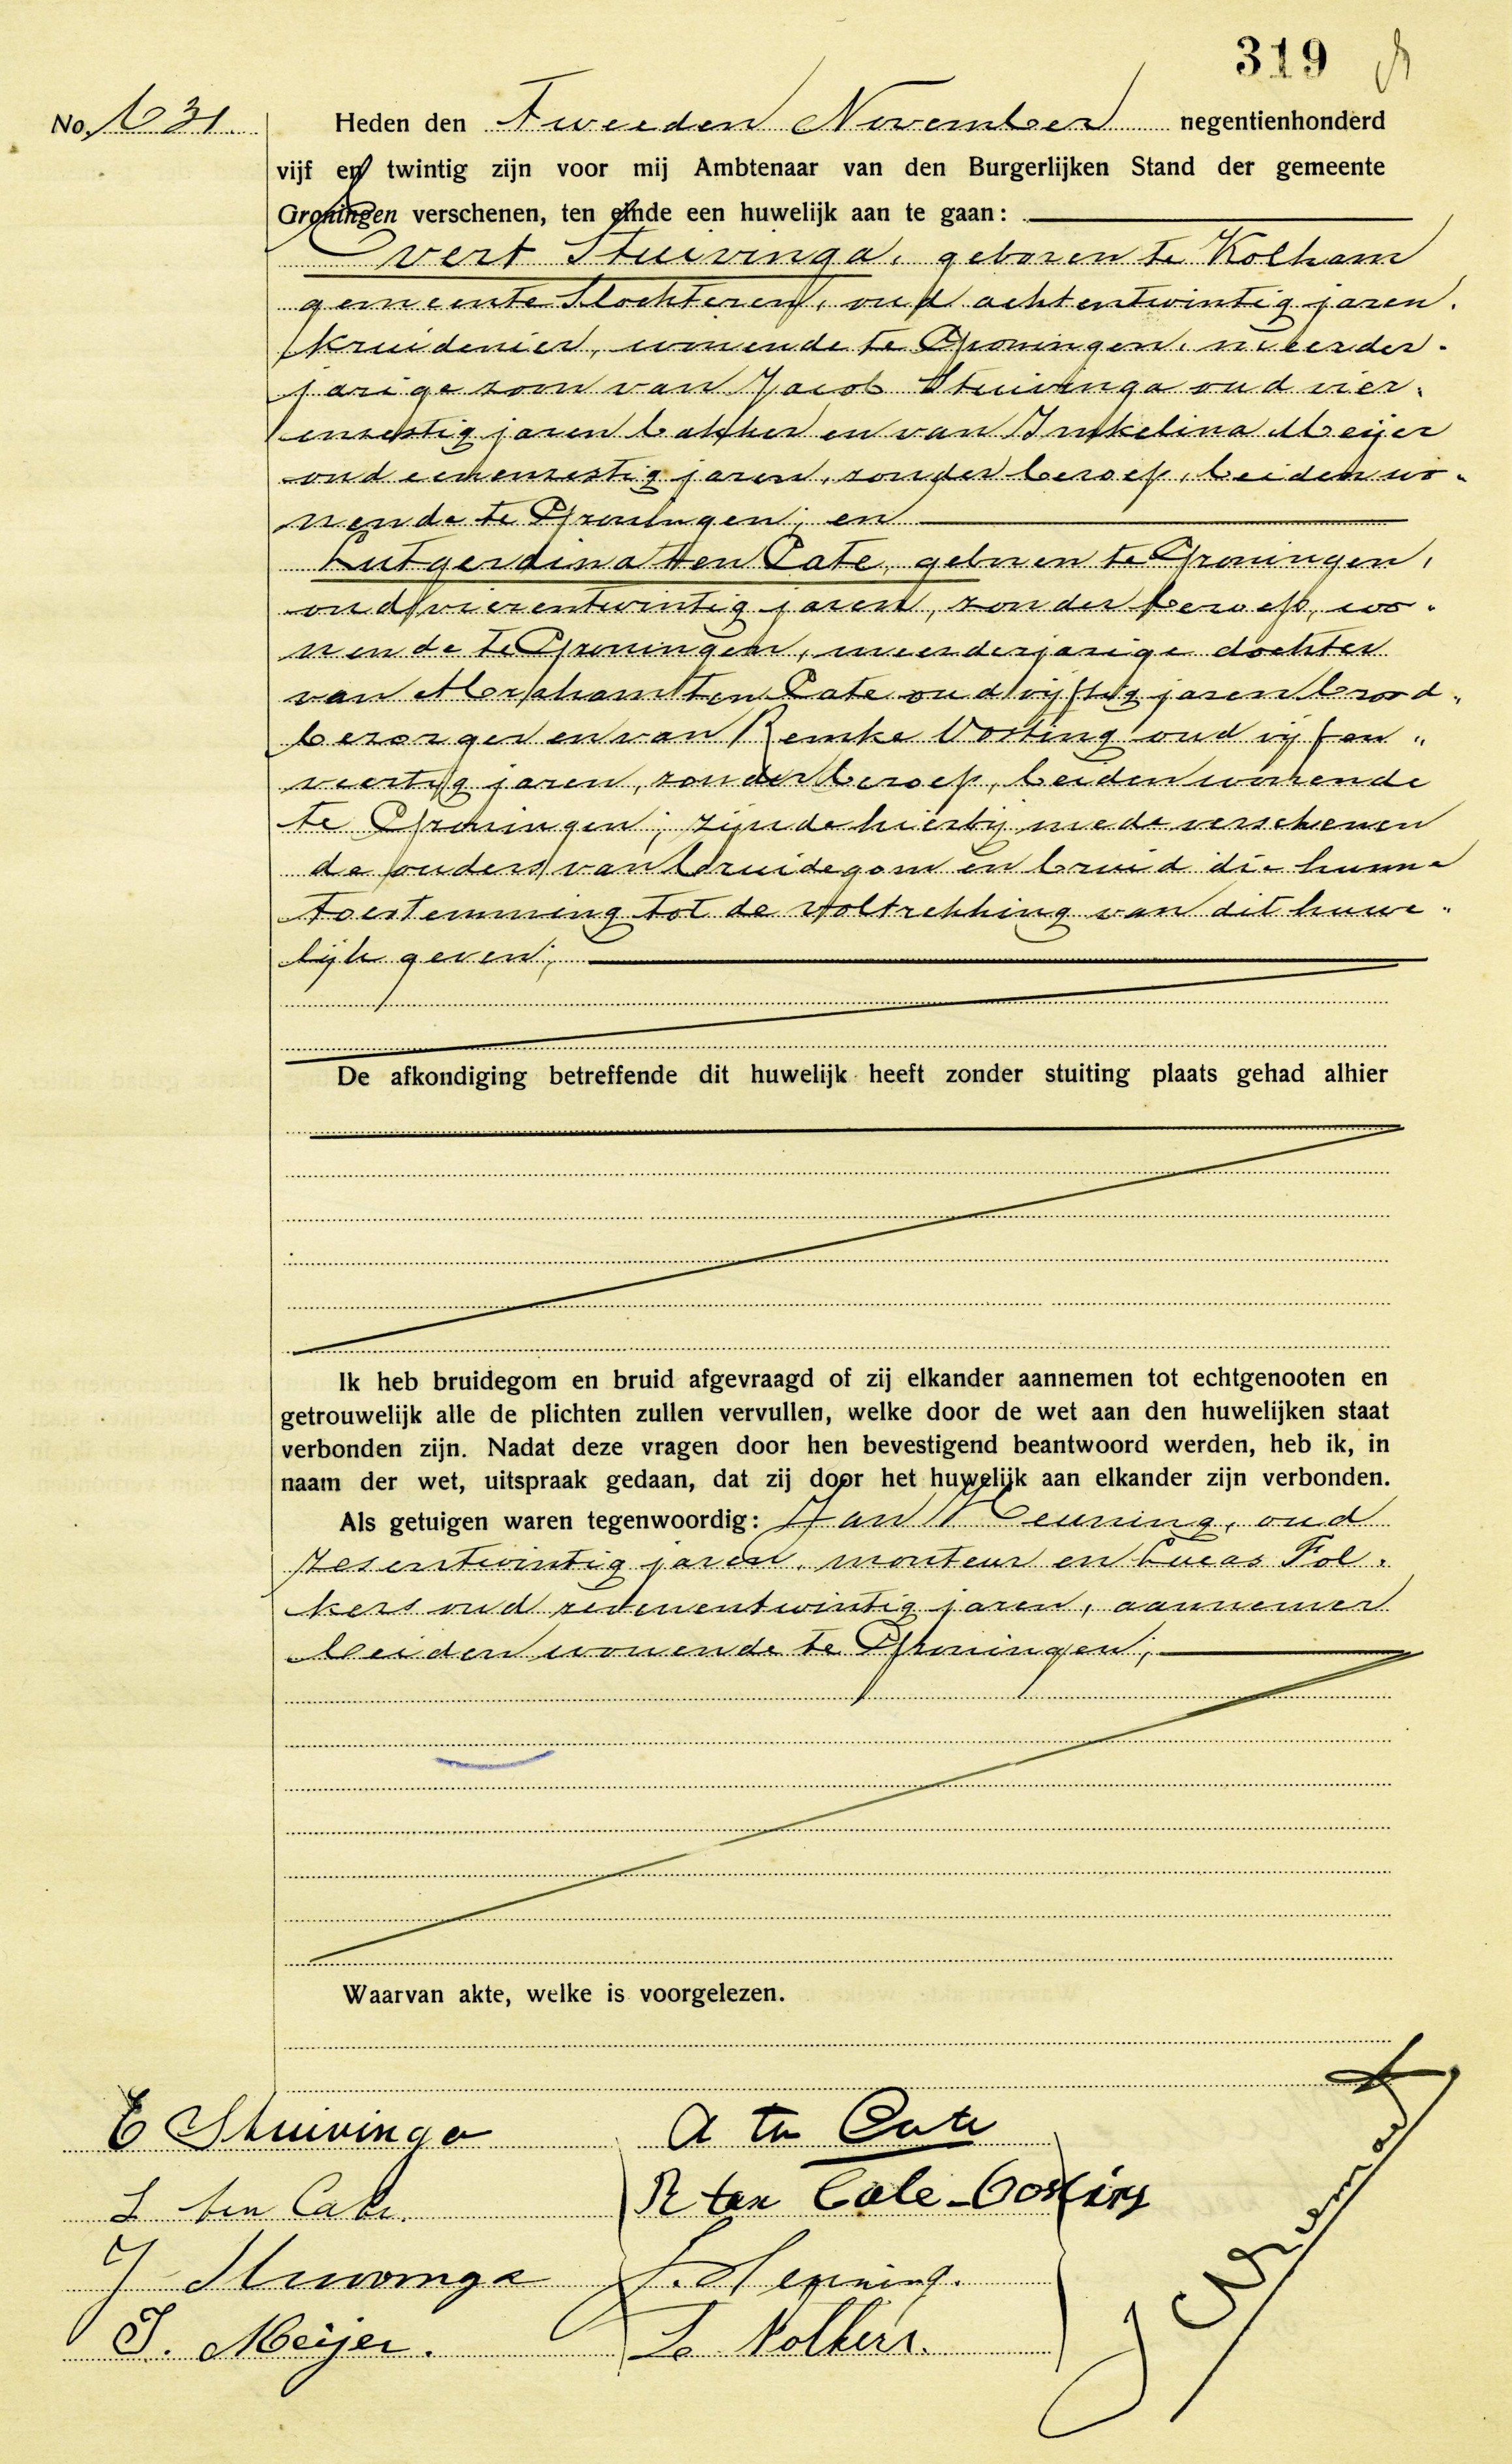 319
No. 631.
Heden den Tweeden November negentienhonderd
vijf en twintig zijn voor mij Ambtenaar van den Burgerlijken Stand der gemeente
Groningen verschenen, ten einde een huwelijk aan te gaan:
Evert Stuivinga, geboren te Kolham
gemeente Slochteren, oud achtentwintig jaren.
kruidenier, wonende te Groningen, meerder-
jarige zoon van Jacob Stuivinga oud vier-
enzestig jaren bakker en van Imkelina Meijer
oud eenenzestig jaren, zonder beroep, beiden wo-
nende te Groningen; en
Lutgerdina ten Cate, geboren te Groningen,
oud vierentwintig jaren, zonder beroep, wo-
nende te Groningen, meerderjarige dochter
van Abraham ten Cate oud vijftig jaren brood-
bezorger en van Remke Oosting oud vijfen-
veertig jaren, zonder beroep, beiden wonende
te Groningen; zijnde hierbij mede verschenen
de ouders van bruidegom en bruid die hunne
toestemming tot de voltrekking van dit huwe-
lijk geven;
De afkondiging betreffende dit huwelijk heeft zonder stuiting plaats gehad alhier
Ik heb bruidegom en bruid afgevraagd of zij elkander aannemen tot echtgenooten en
getrouwelijk alle de plichten zullen vervullen, welke door de wet aan den huwelijken staat
verbonden zijn. Nadat deze vragen door hen bevestigend beantwoord werden, heb ik, in
naam der wet, uitspraak gedaan, dat zij door het huwelijk aan elkander zijn verbonden.
Als getuigen waren tegenwoordig: Jan oud
zesentwintig jaren, monteur en Lucas Fol-
kers oud zevenentwintig jaren, aannemer
beiden wonende te Groningen;
Waarvan akte, welke is voorgelezen.
E Stuivinga
A ten Cate
L ten Cate.
R ten Cate-Oosting
J Stuivinga
J.
I. Meijer.
L. Folkers.